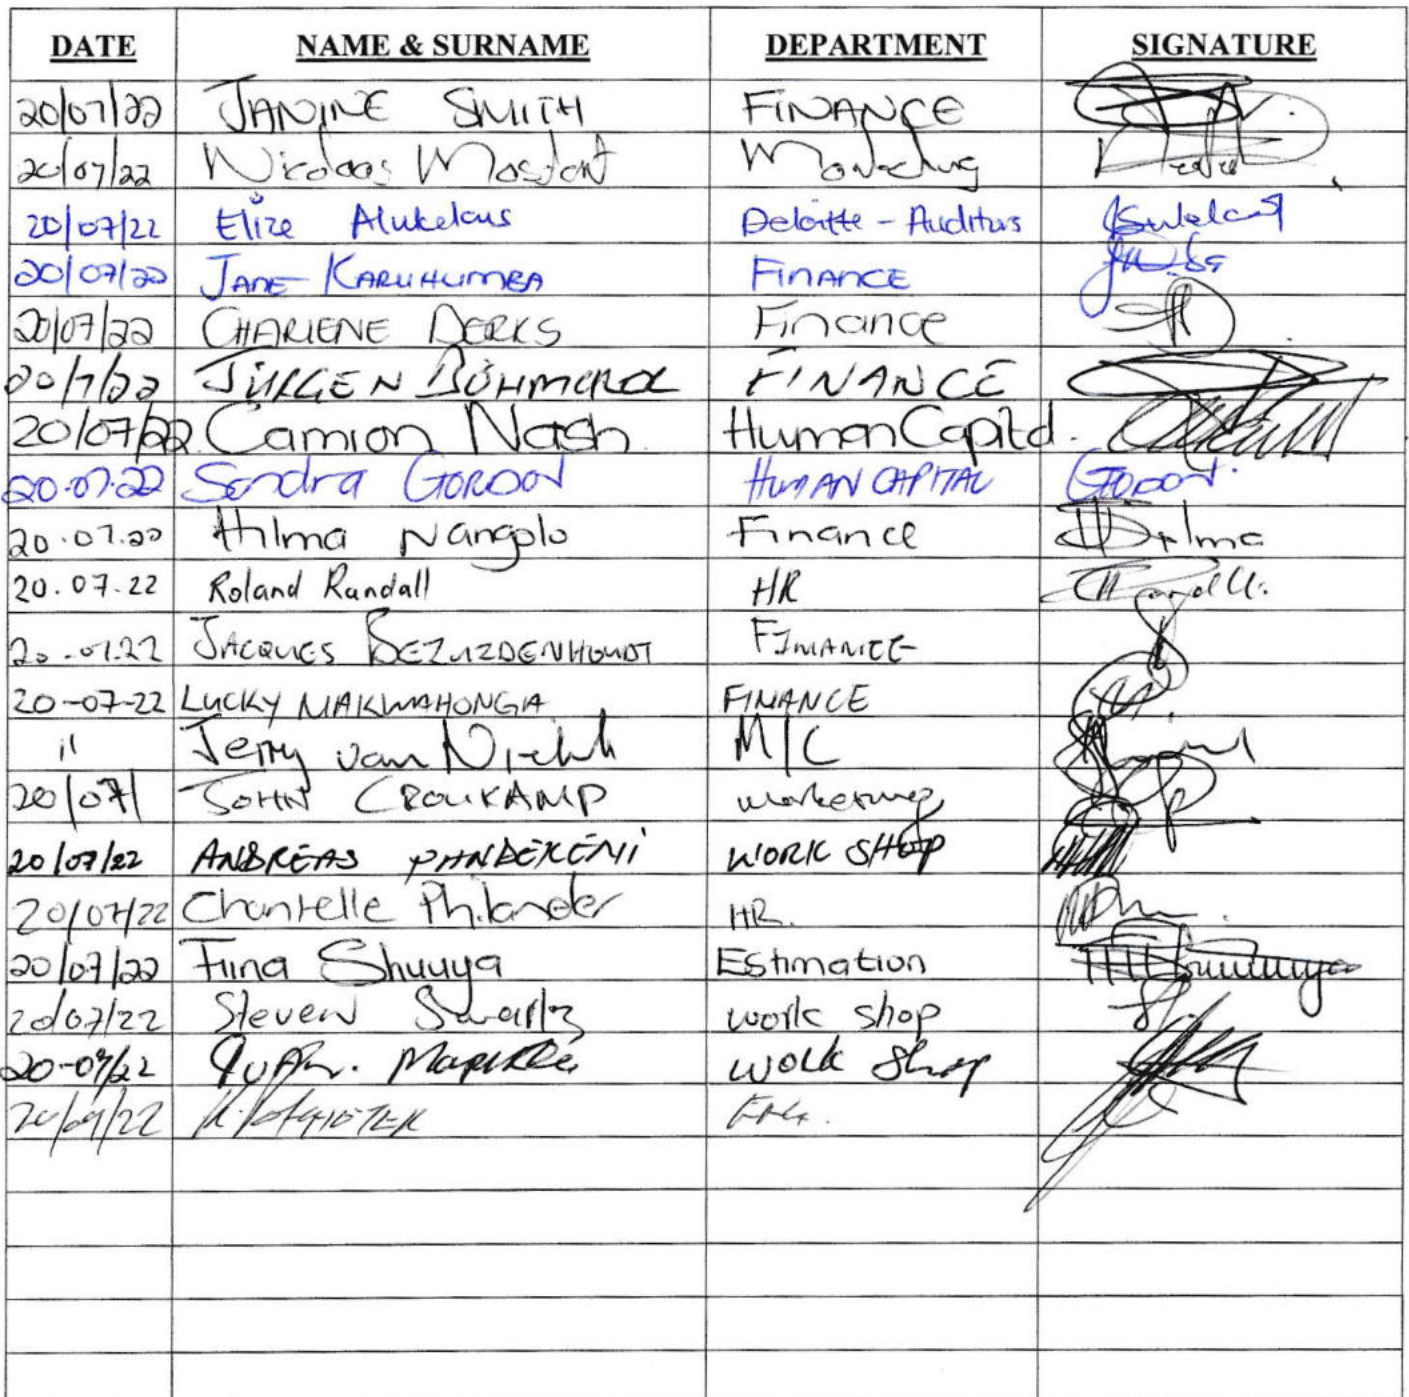 DATE NAME & SURNAME DEPARTMENT SIGNATURE
20/07/22 JANINE SMITH FINANCE
20/07/22 Nicolaas Mostert
20/07/22 Elize Deloitte - Auditors
20/07/22 JANE KARUHUMBA FINANCE
20/07/22 CHARLENE DERKS Finance
20/7/22 JÜRGEN FINANCE
20/07/22 Camion Nash Human Capital.
20.07.22 Sandra GORDON HUMAN CAPITAL GORDON
20.07.22 Hilma Nangolo Finance Hilma
20.07.22 Roland Randall HR
20.07.22 JACQUES BEZUIDENHOUDT FINANCE
20-07-22 LUCKY MAKWAHONGA FINANCE
11 Jerry van M/C
20/07/ JOHN CROUKAMP marketing
20/07/22 ANDREAS PANDEKENI WORK SHOP
20/07/22 Chantelle Philander HR.
20/07/22 Fiina Shuuya Estimation
20/07/22 Steven Swartz work shop
20-07/22 work shop